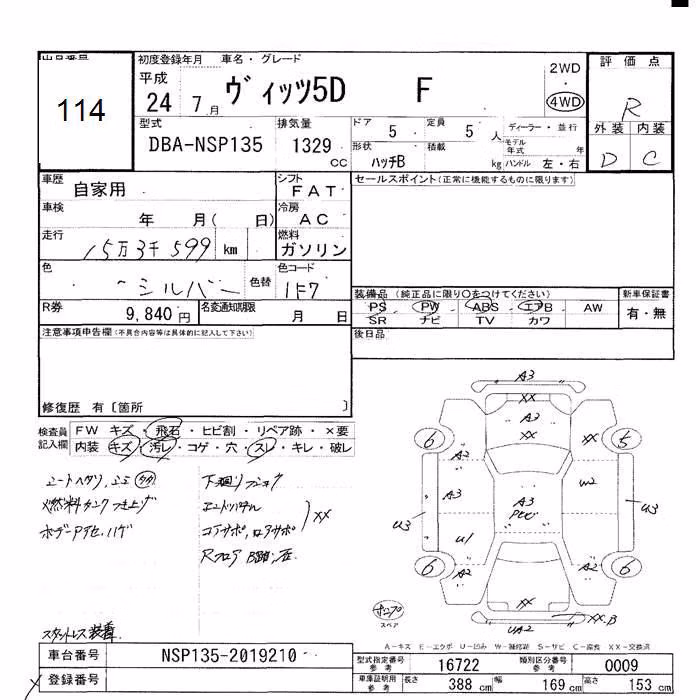 出品番号
114
初度登録年月
平成
24 7 月
車名・グレード
ヴィッツ5D F
2WD
・
4WD
評価点
R
外装 内装
D C
型式
DBA-NSP135
排気量
1329 CC
ドア 5
定員 5 人
形状 ハッチB
積載 kg
ディーラー・並行
モデル年式 年
ハンドル 左・右
車歴
自家用
シフト
FAT
セールスポイント(正常に機能するものに限ります)
車検
年 月( 日)
冷房
AC
走行
15万3千599 km
燃料
ガソリン
色
シルバー
色替
色コード
1F7
装備品 (純正品に限り○をつけてください)
PS PW ABS エアB AW
SR ナビ TV カワ
新車保証書
有・無
R券
9,840円
名変通知期限
月 日
注意事項申告欄(不具合内容等は具体的に記入して下さい)
後日品
修復歴 有〔箇所 〕
検査員記入欄
FW キズ・飛石・ヒビ割・リペア跡・×要
内装 キズ・汚レ・コゲ・穴・スレ・キレ・破レ
シートヘタリ
燃料タンク
ボデー
下廻り
XX
コアサポ
Rフロア
スタットレス装着
A3
XX
A3
XX
XX
6
5
A2
A3
A3
W2
U3
U3
U1
A2
A2
6
6
XX
XX.B
UA2
スペア
A-キズ E-エクボ U-凹み W-補修跡 S-サビ C-腐食 XX-交換済
車台番号
NSP135-2019210
登録番号
型式指定番号 参考
16722
類別区分番号 参考
0009
車庫証明用 参考
長さ 388 cm
幅 169 cm
高さ 153 cm